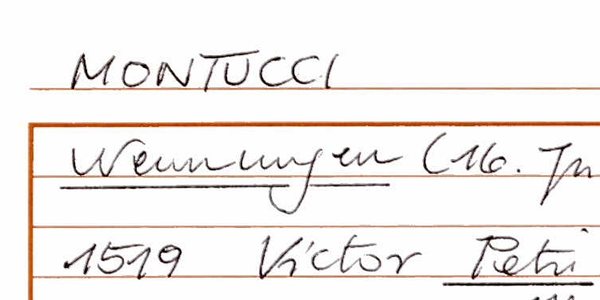 MONTUCCI
Wennungen (16.
1519 Victor Petri